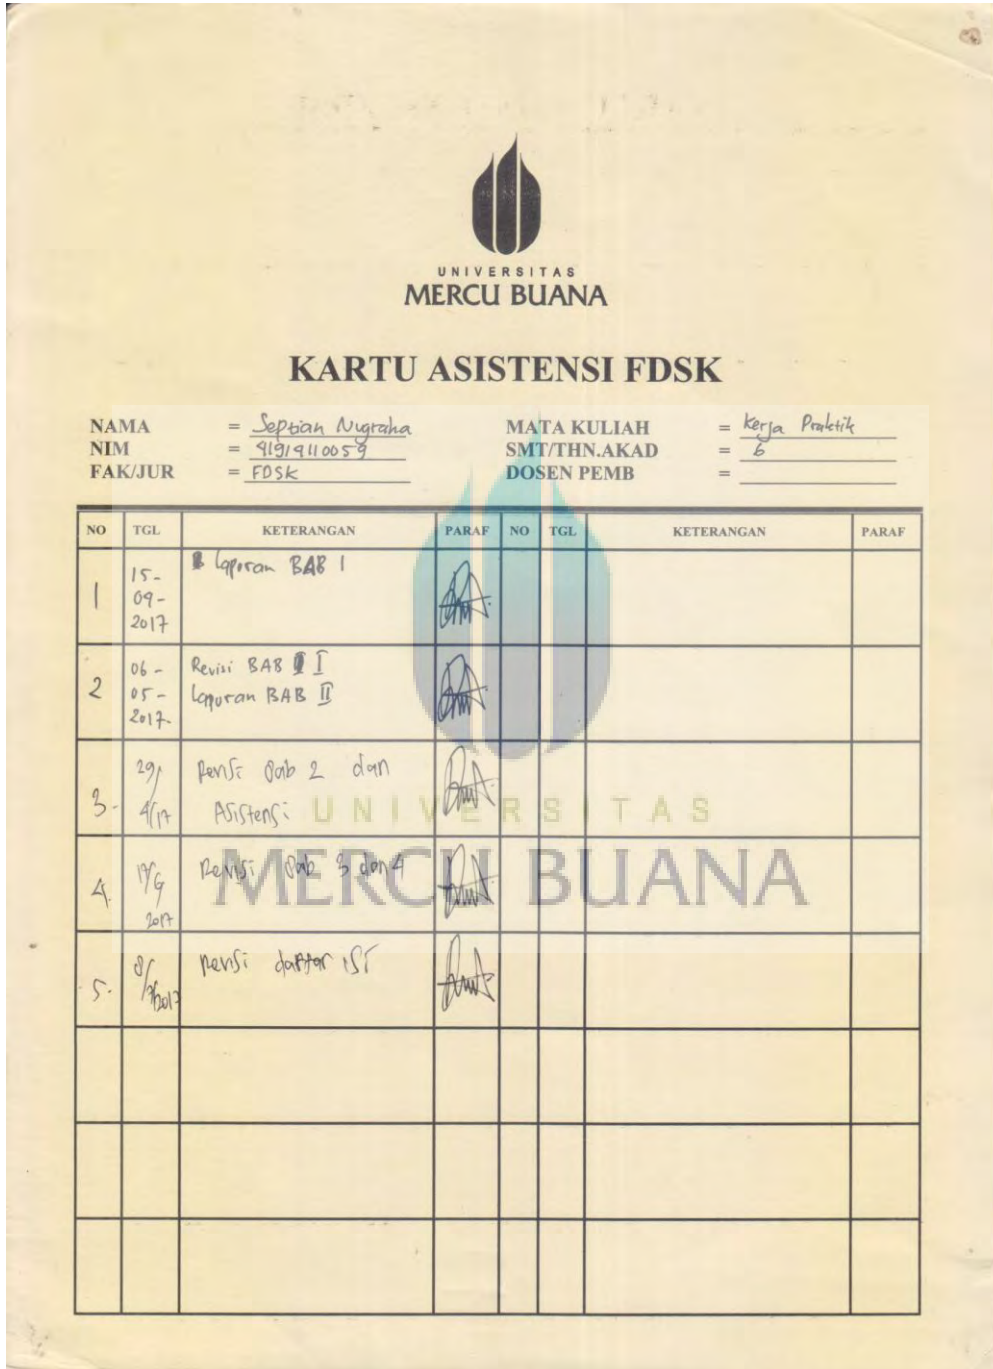 UNIVERSITAS
MERCU BUANA
KARTU ASISTENSI FDSK
NAMA = Septian Nugraha
NIM = 41919110059
FAK/JUR = FDSK
MATA KULIAH = Kerja Praktik
SMT/THN.AKAD = 6
DOSEN PEMB =
NO TGL KETERANGAN PARAF NO TGL KETERANGAN PARAF
1 15-09-2017 Laporan BAB 1
2 06-05-2017 Revisi BAB I
Laporan BAB II
3. 29/4/17 Revisi Bab 2 dan
Asistensi
4. 17/ 2017 Revisi Bab 3 dan 4
5. 8/7/2017 Revisi daftar isi
UNIVERSITAS
MERCU BUANA